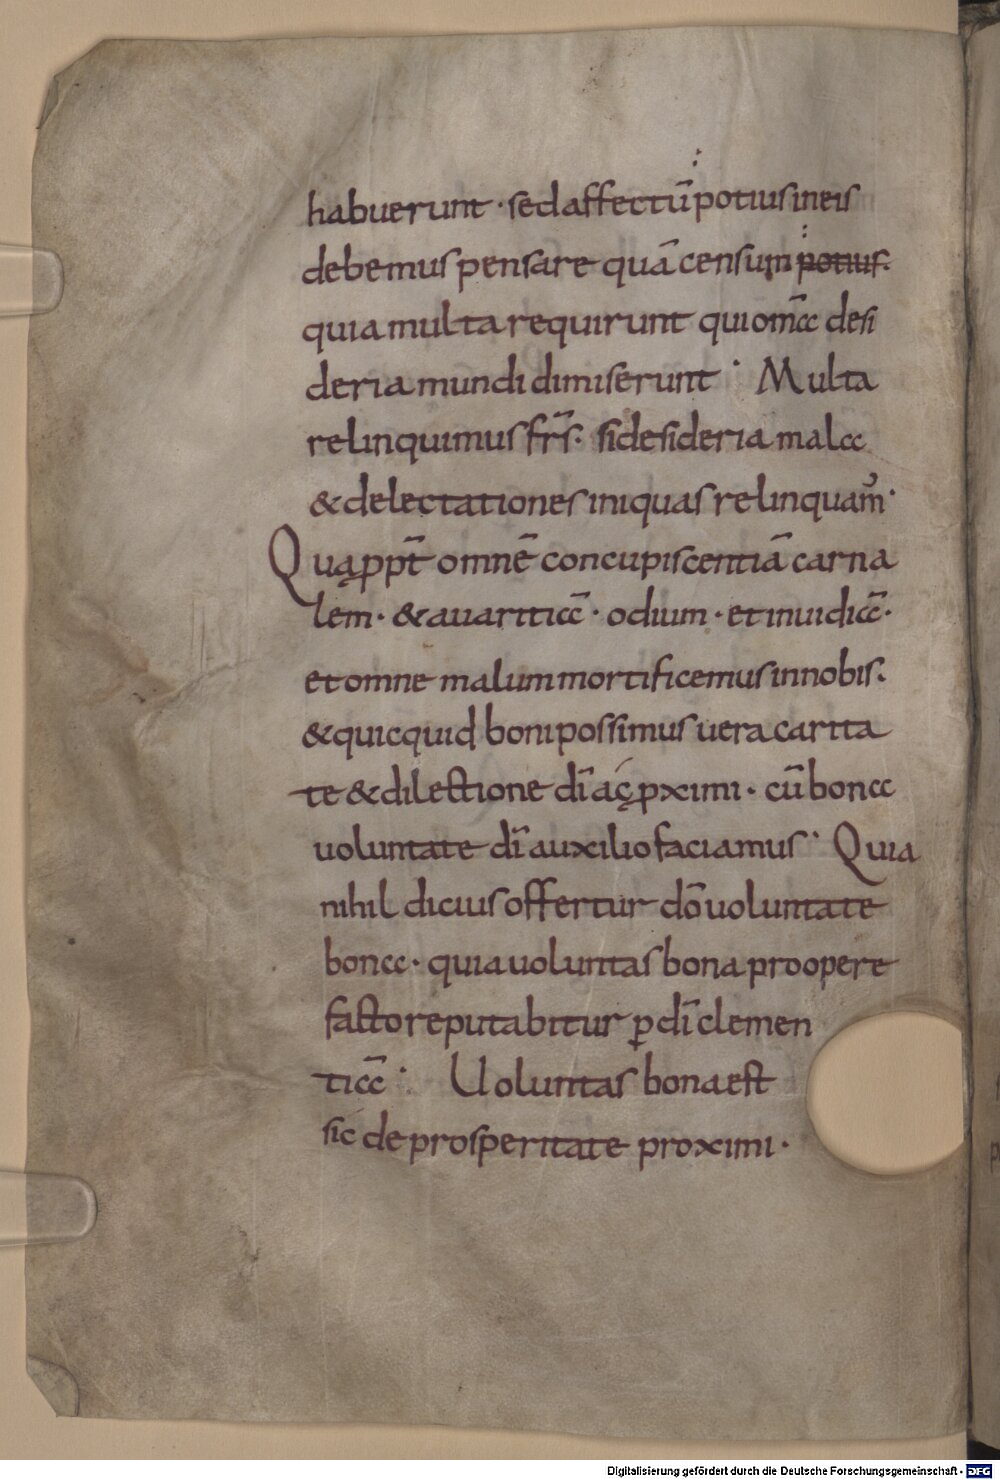 habuerunt · sed affectū potius in eis
debemus pensare quā censum potius·
quia multa requirunt qui om̄a desi
deria mundi dimiserunt · Multa
relinquimus fr̄s · si desideria mala
& delectationes iniquas relinquam̄ ·
Quapp̄t omnē concupiscentiā carna
lem · & auaritiā · odium · et inuidiā ·
et omne malum mortificemus in nobis ·
& quicquid boni possimus uera carita
te & dilectione dī ac pximi · cū bona
uoluntate dī auxilio faciamus · Quia
nihil dicius offertur dō uoluntate
bona · quia uoluntas bona pro opere
facto reputabitur p dī clemen
tiā · Uoluntas bona est
sic de prosperitate proximi ·
Digitalisierung gefördert durch die Deutsche Forschungsgemeinschaft - DFG